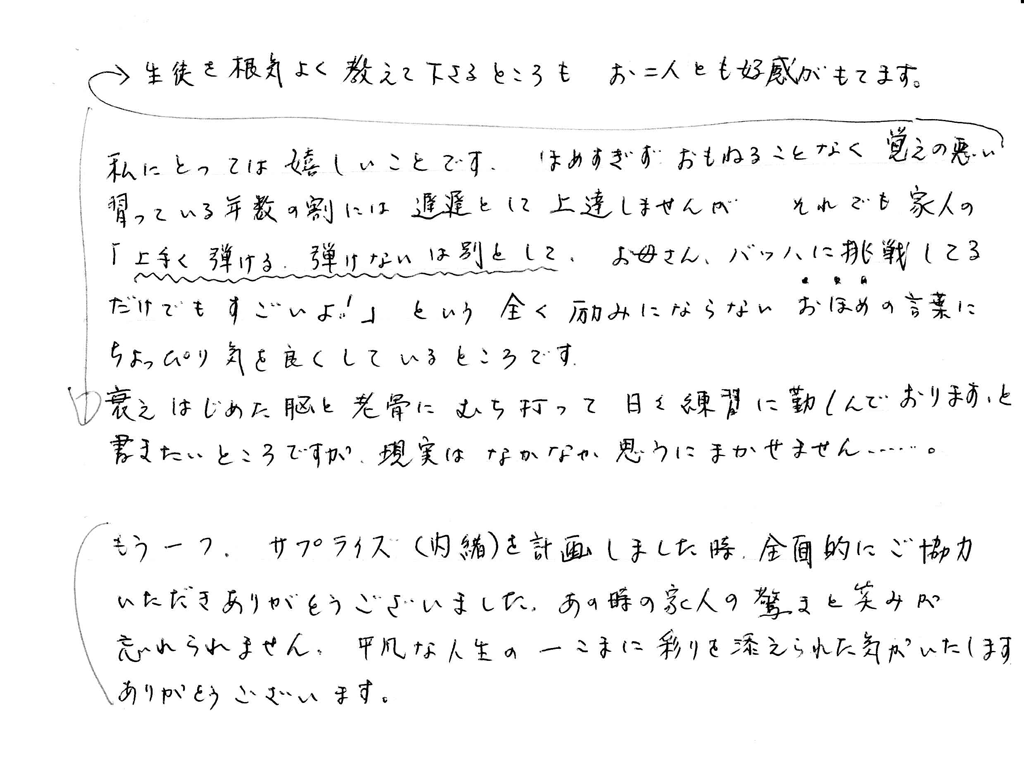 生徒を根気よく教えて下さるところも お二人とも好感がもてます。
私にとっては嬉しいことです。 ほめすぎず おもねることなく 覚えの悪い
習っている年数の割には 遅遅として上達しませんが それでも家人の
「上手く弾ける、弾けないは別として、 お母さん、バッハに挑戦してる
だけでもすごいよ!」という 全く励みにならない おほめの言葉に
ちょっぴり気を良くしているところです。
衰えはじめた脳と老骨にむち打って 日々練習に勤しんでおります、と
書きたいところですが、現実は なかなか 思うにまかせません……。
もう一つ、 サプライズ(内緒)を計画しました時、全面的にご協力
いただきありがとうございました。あの時の家人の驚きと笑みが
忘れられません。 平凡な人生の一こまに彩りを添えられた気がいたします
ありがとうございます。